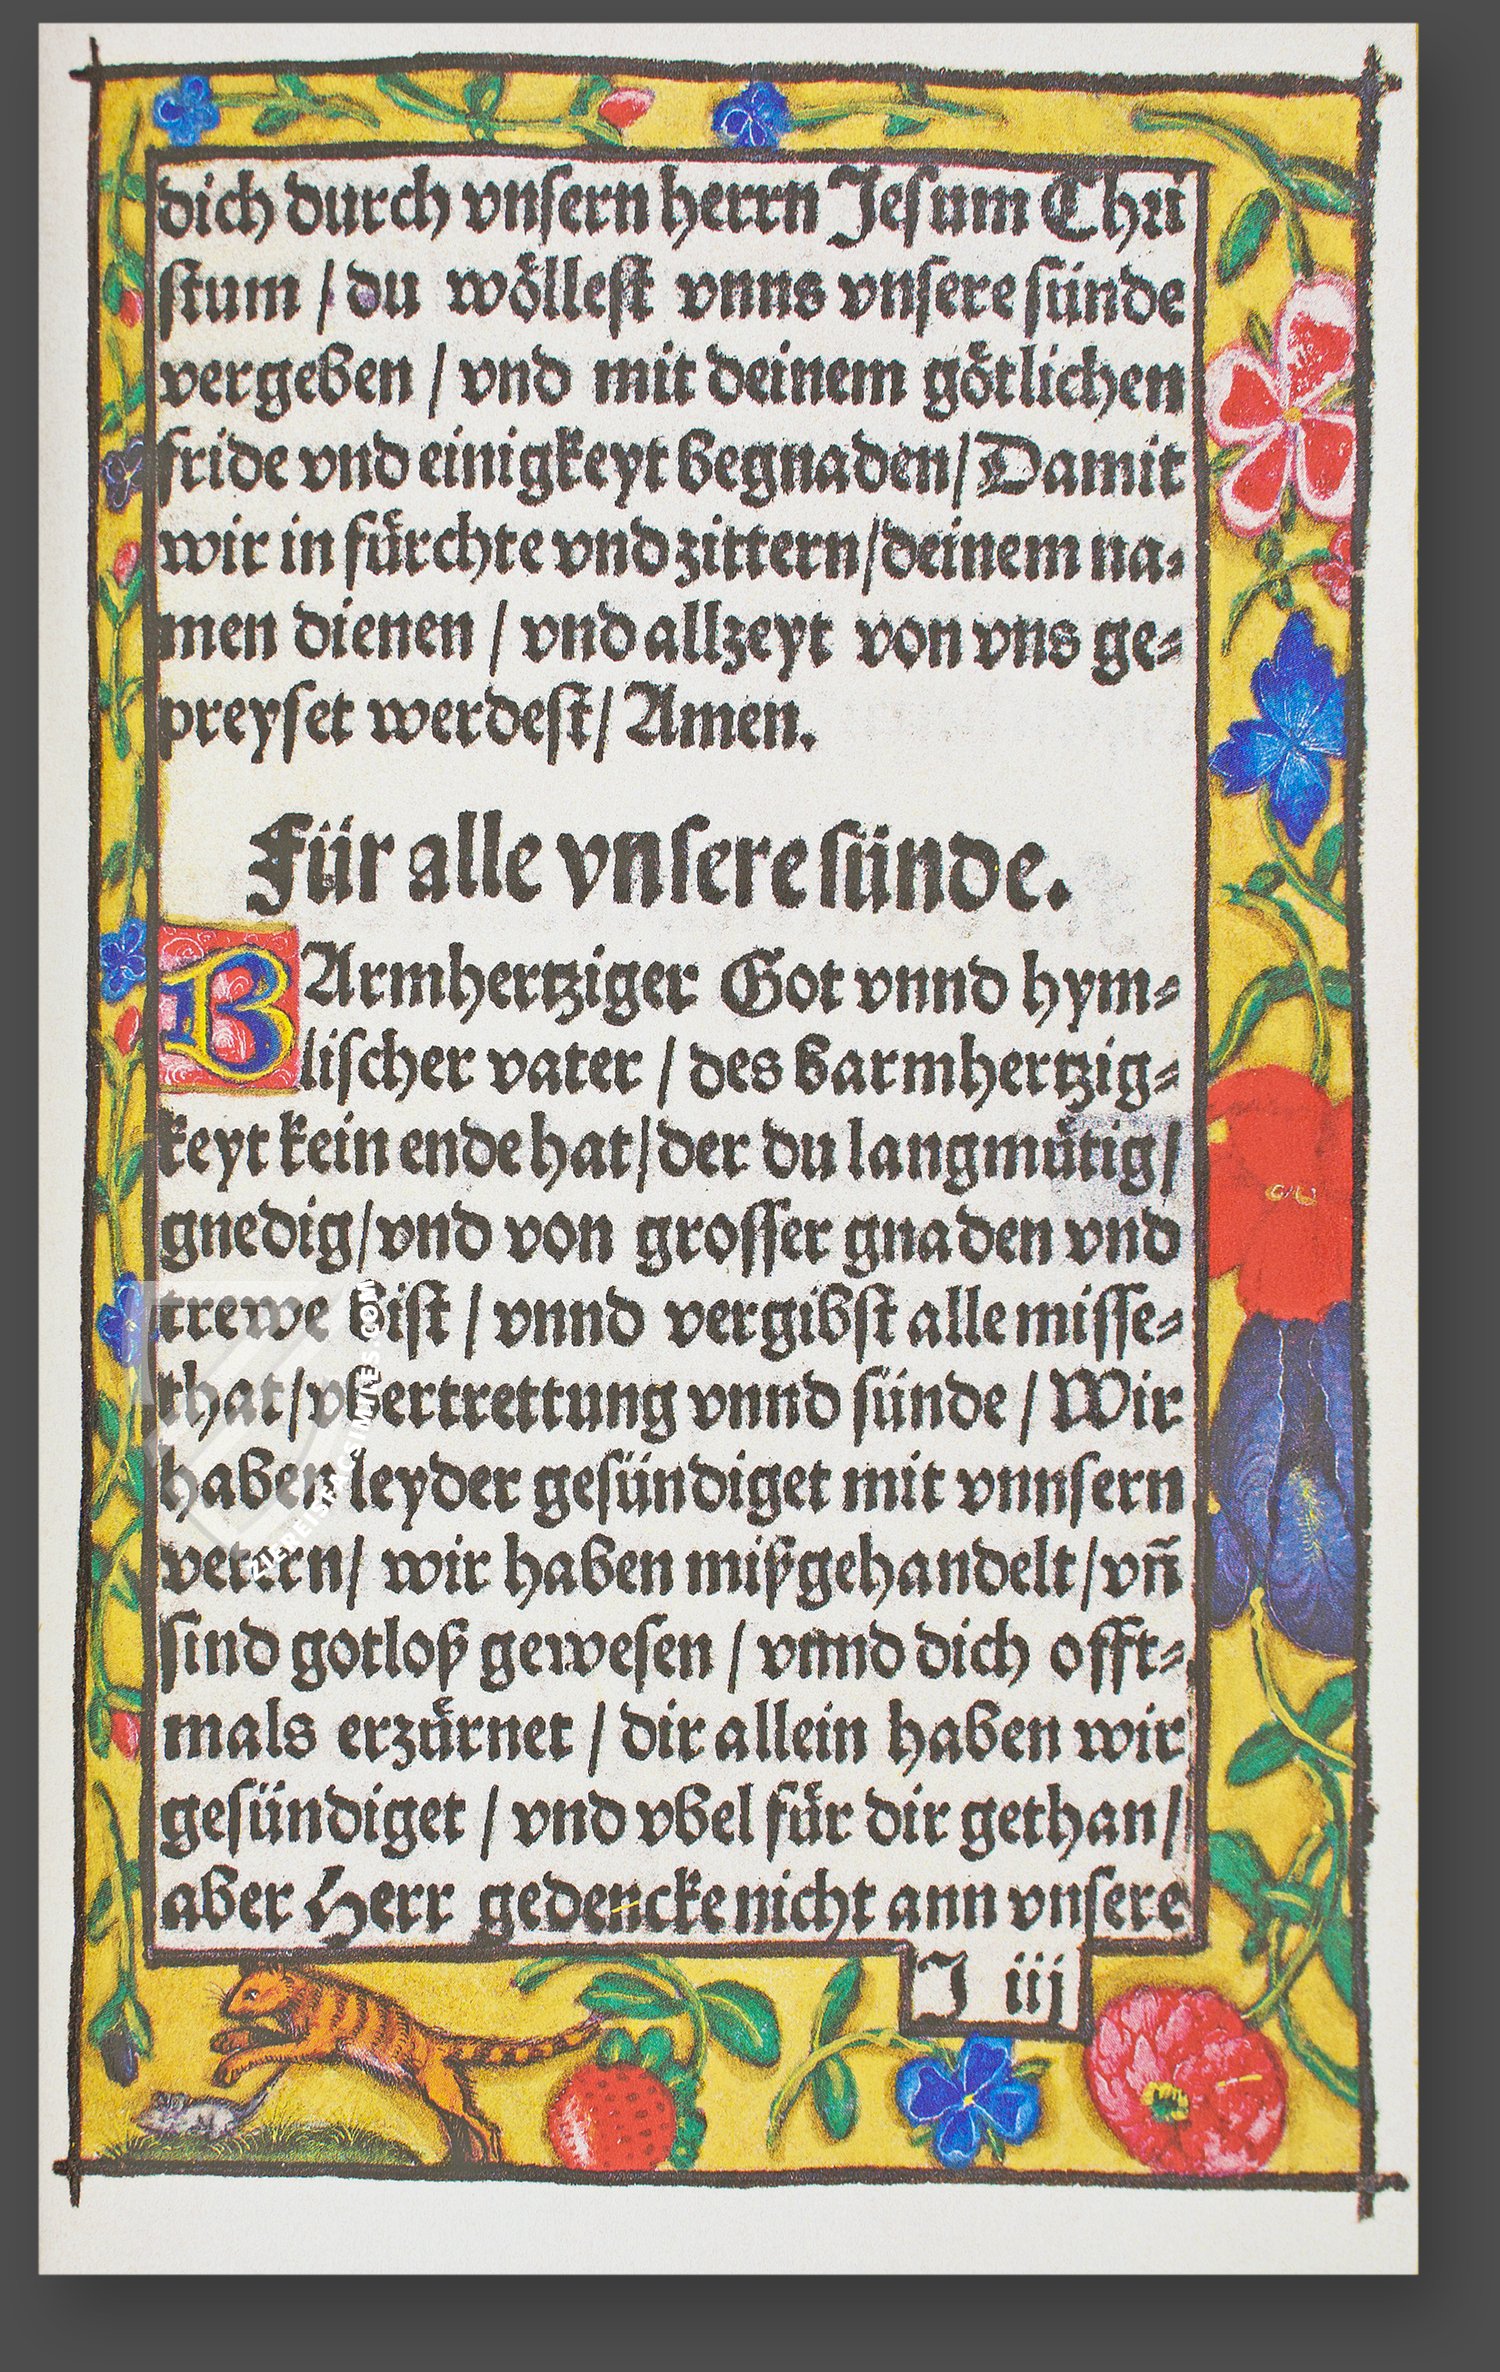 dich durch vnsern herrn Jesum Chri
stum / du wöllest vnns vnsere sünde
vergeben / vnd mit deinem götlichen
fride vnd einigkeyt begnaden/ Damit
wir in fürchte vnd zittern/deinem na⸗
men dienen / vnd allzeyt von vns ge⸗
preyset werdest/ Amen.
Für alle vnsere sünde.
BArmhertziger Got vnnd hym⸗
lischer vater / des barmhertzig⸗
keyt kein ende hat/der du langmütig/
gnedig/vnd von grosser gnaden vnd
trewe bist / vnnd vergibst alle misse⸗
that/vbertrettung vnnd sünde / Wir
haben leyder gesündiget mit vnnsern
vetern/ wir haben mißgehandelt/vñ
sind gotloß gewesen / vnnd dich offt⸗
mals erzürnet / dir allein haben wir
gesündiget / vnd vbel für dir gethan/
aber Herr gedencke nicht ann vnsere
J iij
ZIEREISFACSIMILES.COM